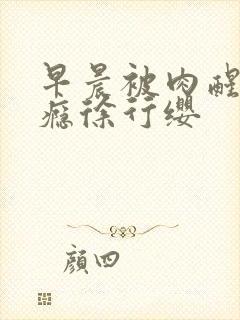 早晨被肉醒
瘾徐行缨
颜四